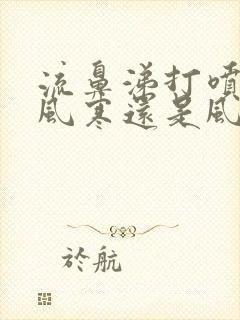 流鼻涕打噴
風寒還是風
於航